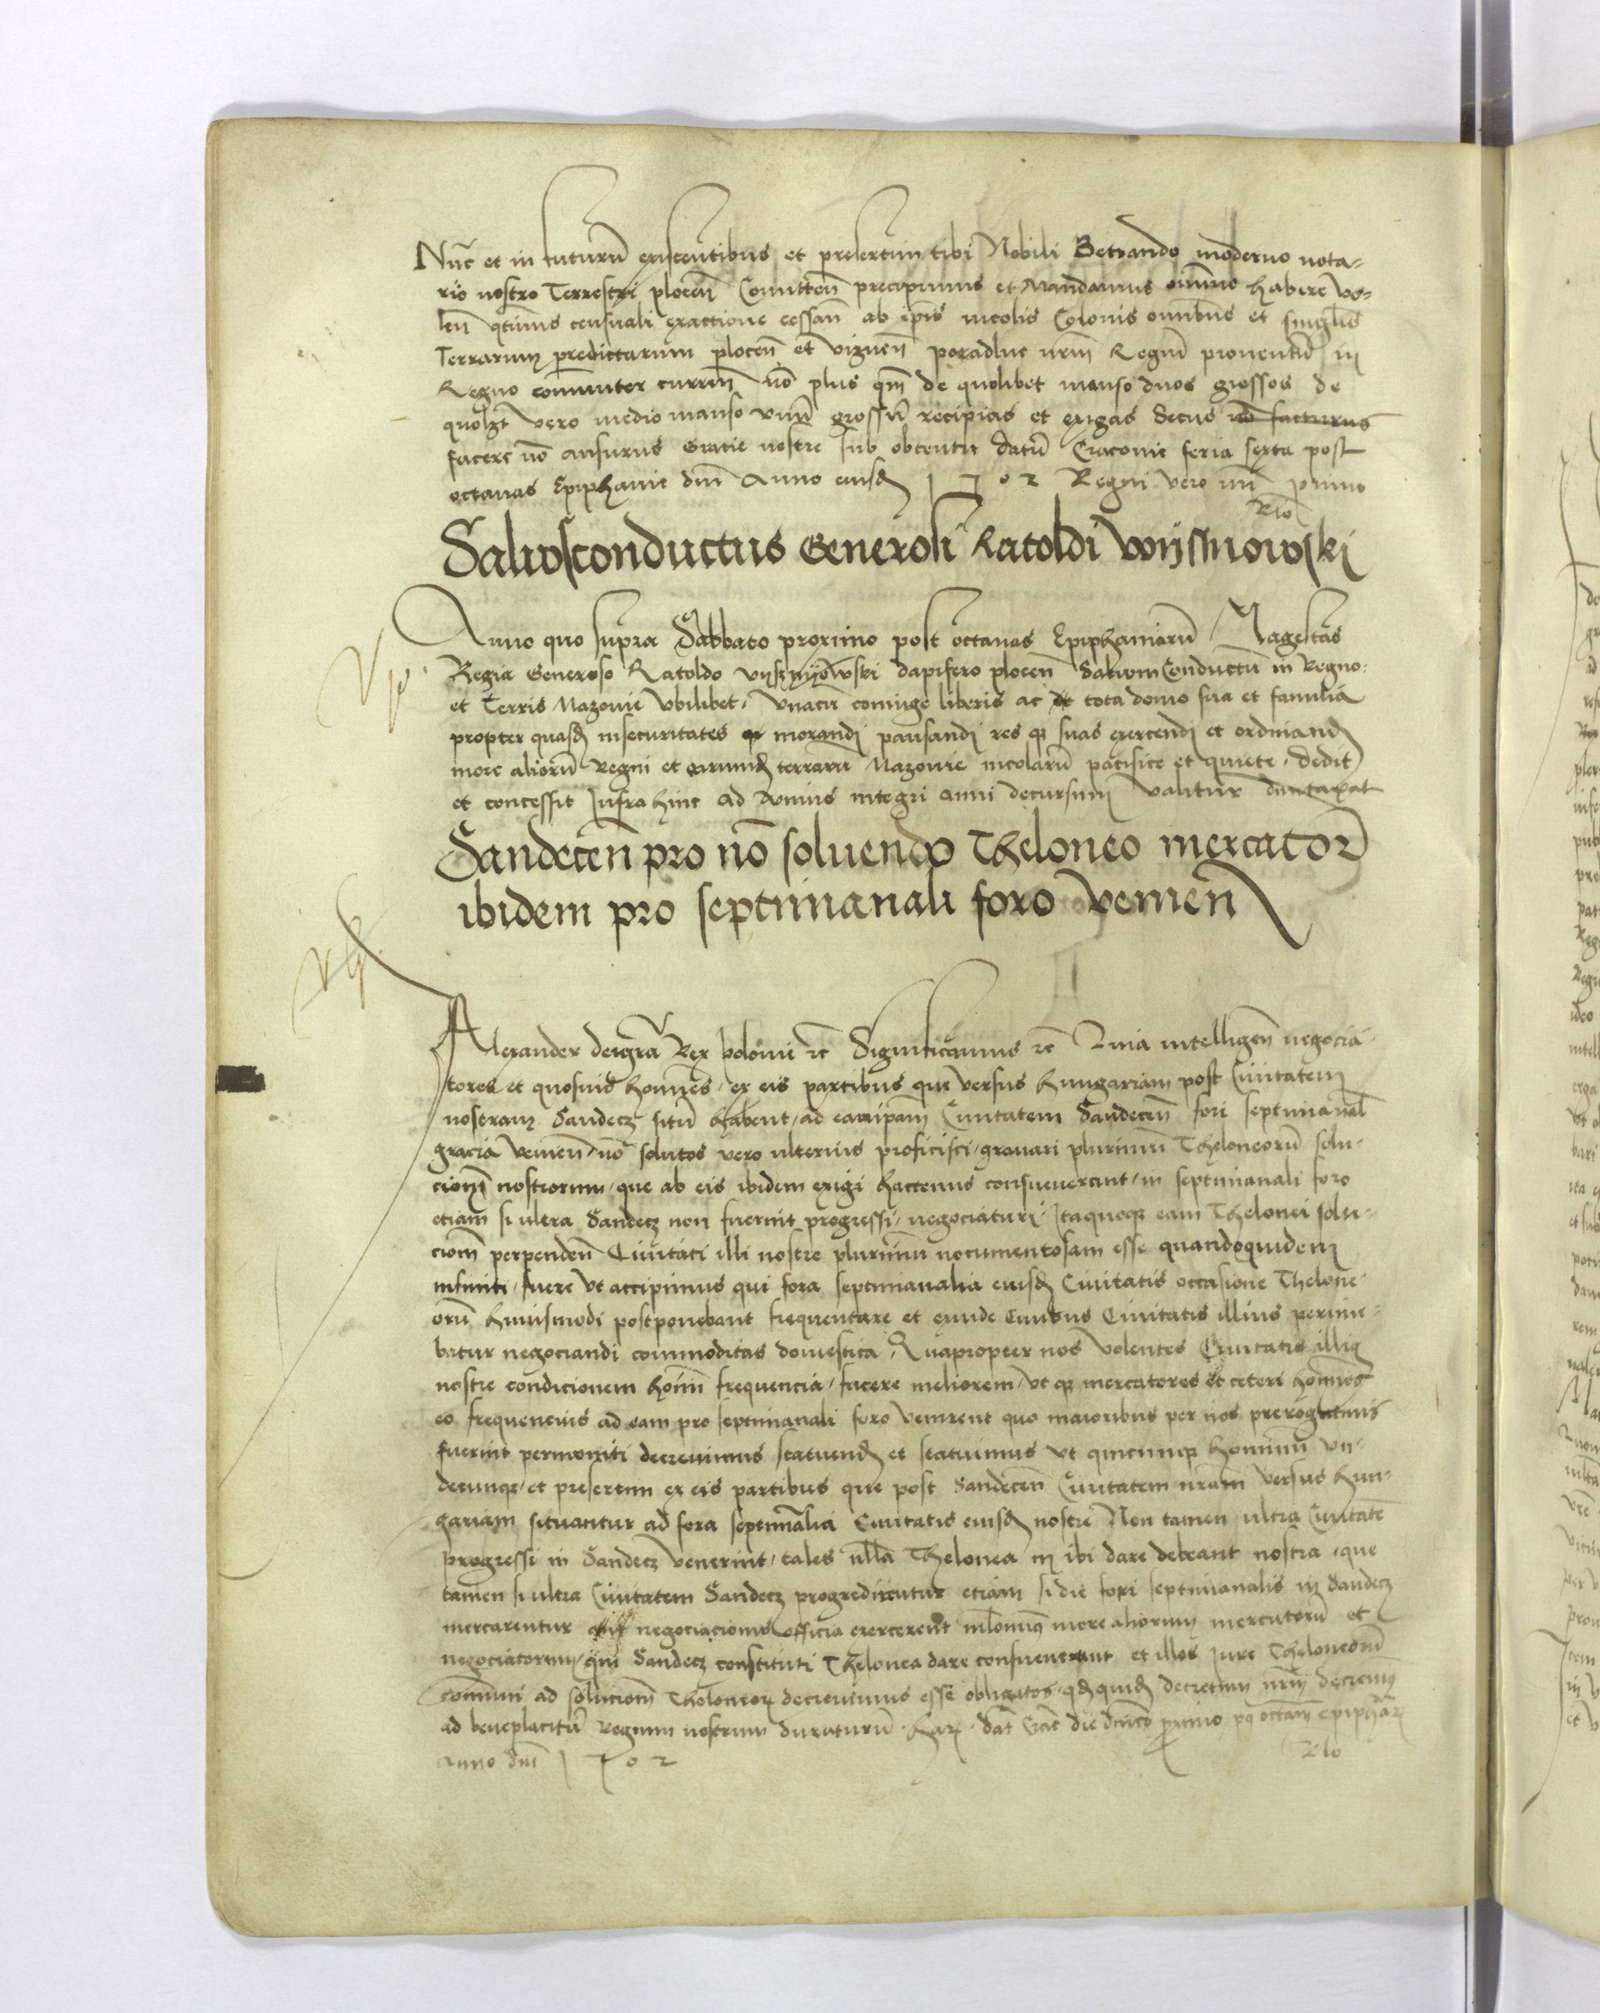 Nūc et in futurū existentibus et presertim tibi Nobili Betrando moderno nota-
rio nostro Terrestri plocen̄ Comitten̄ precipimus et Mandamus oīmno habere vo-
len̄ q̄tinus censuali exactione cessan̄ ab ip̄is incolis Colonis omībus et singlis
Terrarum predictarum plocen̄ et vignen̄ poradlne nr̄m Regiū proventū in
Regno comuniter curren̄ nō plus qm̄ de quolibet manso duos grossos de
quolzt vero medio manso unū grossū recipias et exigas Secus nō facturus
facere nō ansurus Gratie nostre sub obtentu datū Cracovie feria sexta post
octavas Epiphanie dn̄i Anno eiusd 1502 Regni vero nr̄i primo
Rlo
Salvsconductus Generosi Katoldi Wyssnowski
Anno quo supra Sabbato proximo post octavas Epiphaniarū Magestas
Regia Generoso Katoldo vyssnyowski dapifero plocen̄ Salvum Conductū in Regno
et Terris Mazovie ubilibet, unacū coniuge liberis ac de tota domo sua et familia
propter quasd insecuritates morandi pausandi res q̄ suas exercendi et ordinand
more aliorū Regni et earumd terrarū Mazovie incolarū pacifice et quiete, dedit
et concessit Infra hinc ad unius integri anni decursum valitur duntaxat
Sandecen̄ pro nō solvendo Theloneo mercator
ibidem pro septimanali foro venien̄
Alexander dei gra Rex polonie rc Significamus rc Quia intelligen̄ negocia-
tores et quosvis homīes, ex eis partibus que versus Hungariam post Civitatem
nostram Sandecz sitū habent, ad eam ipam̄ Civitatem Sandecen̄ fori septimanal
gracia venien̄, nō solutos vero ulterius proficisci, gravari plurimū Theloneorū solu-
cionē nostrorum, que ab eis ibidem exigi hactenus consueverant, in septimanali foro
etiam si ultra Sandecz non fuerint progressi, negociaturi, Itaquoq̄ eam Thelonei solu-
ciom̄ perpenden̄ Civitati illi nostre plurimū nocumentosam esse quandoquidem
infiniti, fuere ut accipimus qui fora septimanalia eiusd Civitatis occasione Thelone-
orū huiusmodi postponebant frequentare et exinde Civibus Civitatis illius perime-
batur negociandi commoditas domestica, Quapropter nos volentes Civitatis illiꝯ
nostre condicionem homīn frequencia, facere meliorem, ut q̄ mercatores et ceteri homīes
eo frequencius ad eam pro septimanali foro venirent quo maioribus per nos prerogativis
fuerint permoniti decrevimus statuend et statuimus ut quicunq̄ hominū un-
decunq̄, et presertim ex eis partibus que post Sandecen̄ Civitatem nr̄am versus Hun-
gariam situantur ad fora septimalia Civitatis eiusd nostre Non tamen ultra Civitatē
progressi in Sandecz venerint, tales nlla Thelonea in ibi dare debeant nostra, que
tamen si ultra Civitatem Sandecz progredirentur etiam si die fori septimanalis in Sandecz
mercarentur negociacionis officia exercerent nlominꝯ more aliorum mercatorū et
negociatorum, qui Sandecz constituti Thelonea dare consueverunt et illos Jure Theloneorū
comuni ad soluciom̄ Theloneor decrevimus esse obligatos, qd quid decretum nr̄m decernimꝯ
ad beneplacitū Regnum nostrum duraturū. Har. Dat Crac die dn̄ico primo pꝯ octam̄ epiphar
Anno dn̄i 1502
Rlo